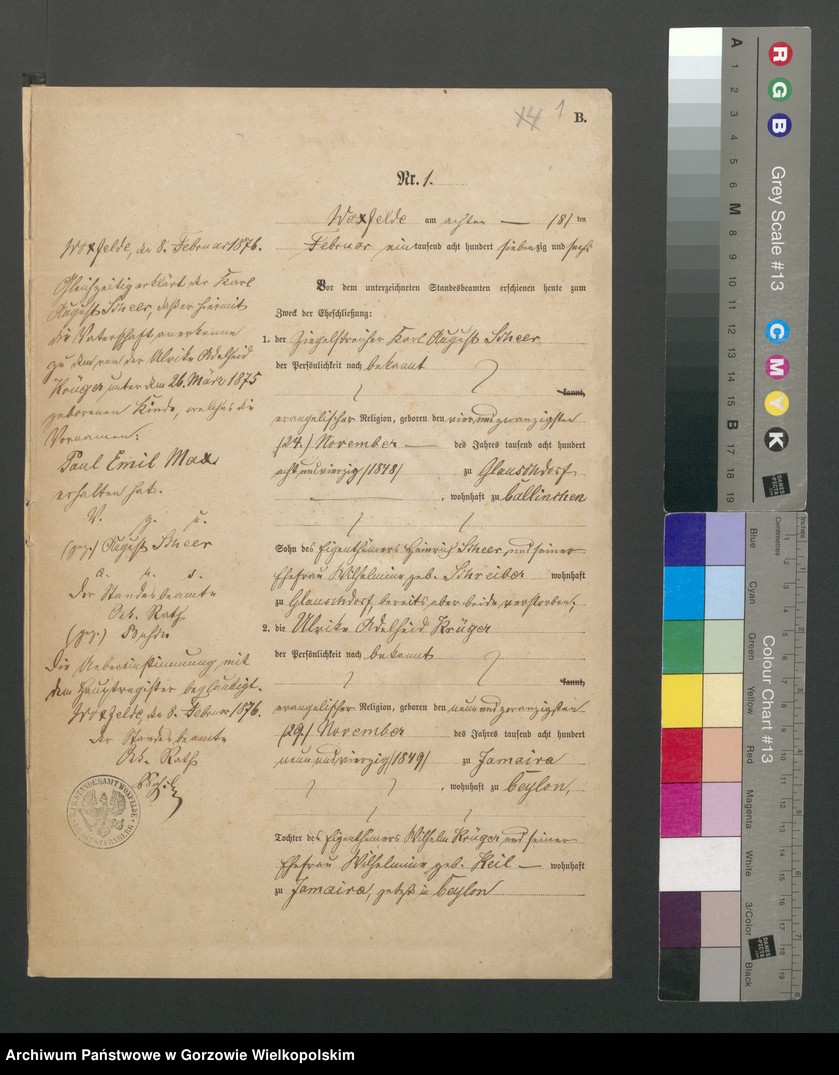 14 1
B.
Nr. 1.
Woxfelde am achten — (8) ten
Februar ein tausend acht hundert siebenzig und sechs
Vor dem unterzeichneten Standesbeamten erschienen heute zum
Zweck der Eheschließung:
1. der Ziegelstreicher Karl August Scheer
der Persönlichkeit nach bekannt
kannt,
evangelischer Religion, geboren den vier und zwanzigsten
(24.) November — des Jahres tausend acht hundert
acht und vierzig (1848) zu Glauschdorf
, wohnhaft zu Cüllinchen
Sohn des Eigenthümers Heinrich Scheer und seiner
Ehefrau Wilhelmine geb. Schreiber wohnhaft
zu Glauschdorf, bereits aber beide verstorben,
2. die Ulrike Adelheid Krüger
der Persönlichkeit nach bekannt
kannt,
evangelischer Religion, geboren den neun und zwanzigsten
(29.) November des Jahres tausend acht hundert
neun und vierzig (1849) zu Jamaica
, wohnhaft zu Ceylon,
Tochter des Eigenthümers Wilhelm Krüger und seiner
Ehefrau Wilhelmine geb. Keil — wohnhaft
zu Jamaica, jetzt in Ceylon
Woxfelde, den 8. Februar 1876.
Gleichzeitig erklärt der Karl
August Scheer, daß er hiermit
die Vaterschaft anerkenne
zu dem von der Ulrike Adelheid
Krüger unter dem 26. März 1875
geborenen Kinde, welches die
Vornamen:
Paul Emil Max
erhalten hat.
V. g. u.
(gez.) August Scheer
a. u. s.
Der Standesbeamte
(gez.)
Die Uebereinstimmung mit
dem Hauptregister beglaubigt.
Woxfelde, den 8. Februar 1876.
Der Standesbeamte
STANDESAMT WOXFELDE
KREIS OST-STERNBERG
Grey Scale #13
A 1 2 3 4 5 6 M 8 9 10 11 12 13 14 15 B 17 18 19
R G B
C M Y K
DANES PICTA
Colour Chart #13
Blue
Cyan
Green
Yellow
Red
Magenta
White
3/Color
Black
Inches
Centimetres
DANES PICTA
Archiwum Państwowe w Gorzowie Wielkopolskim